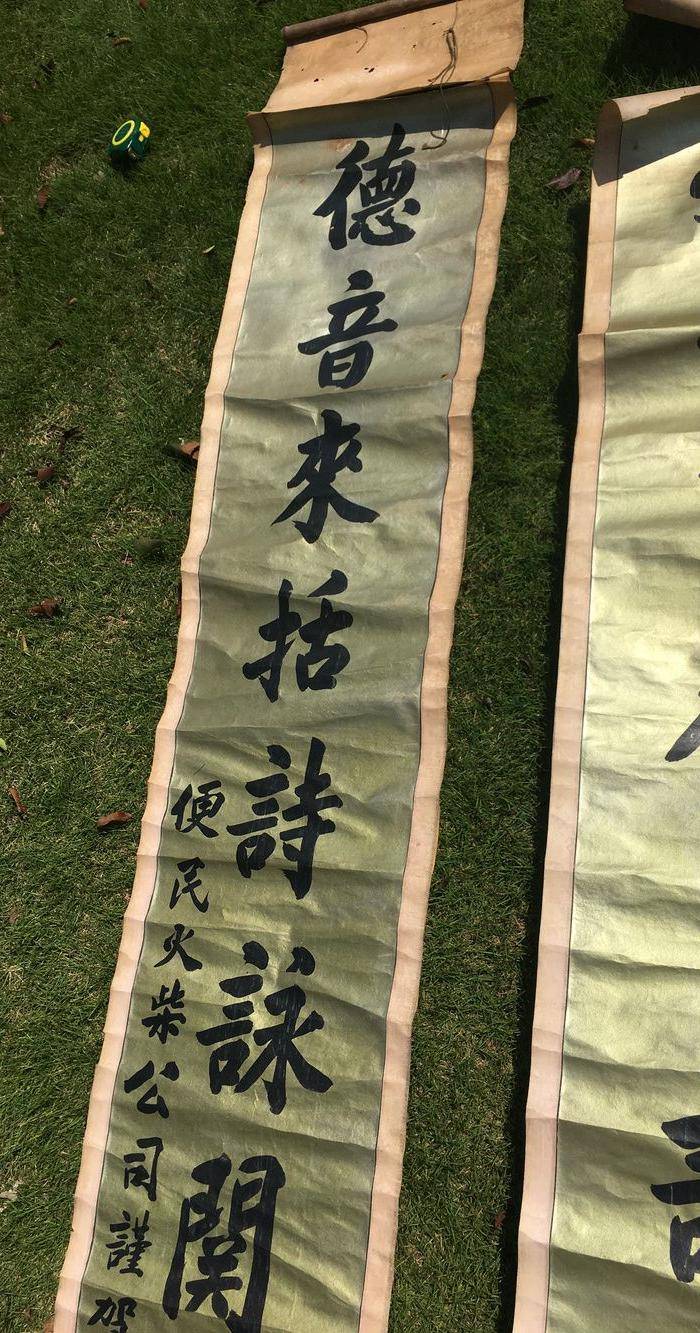 德音來括詩詠關
便民火柴公司謹賀